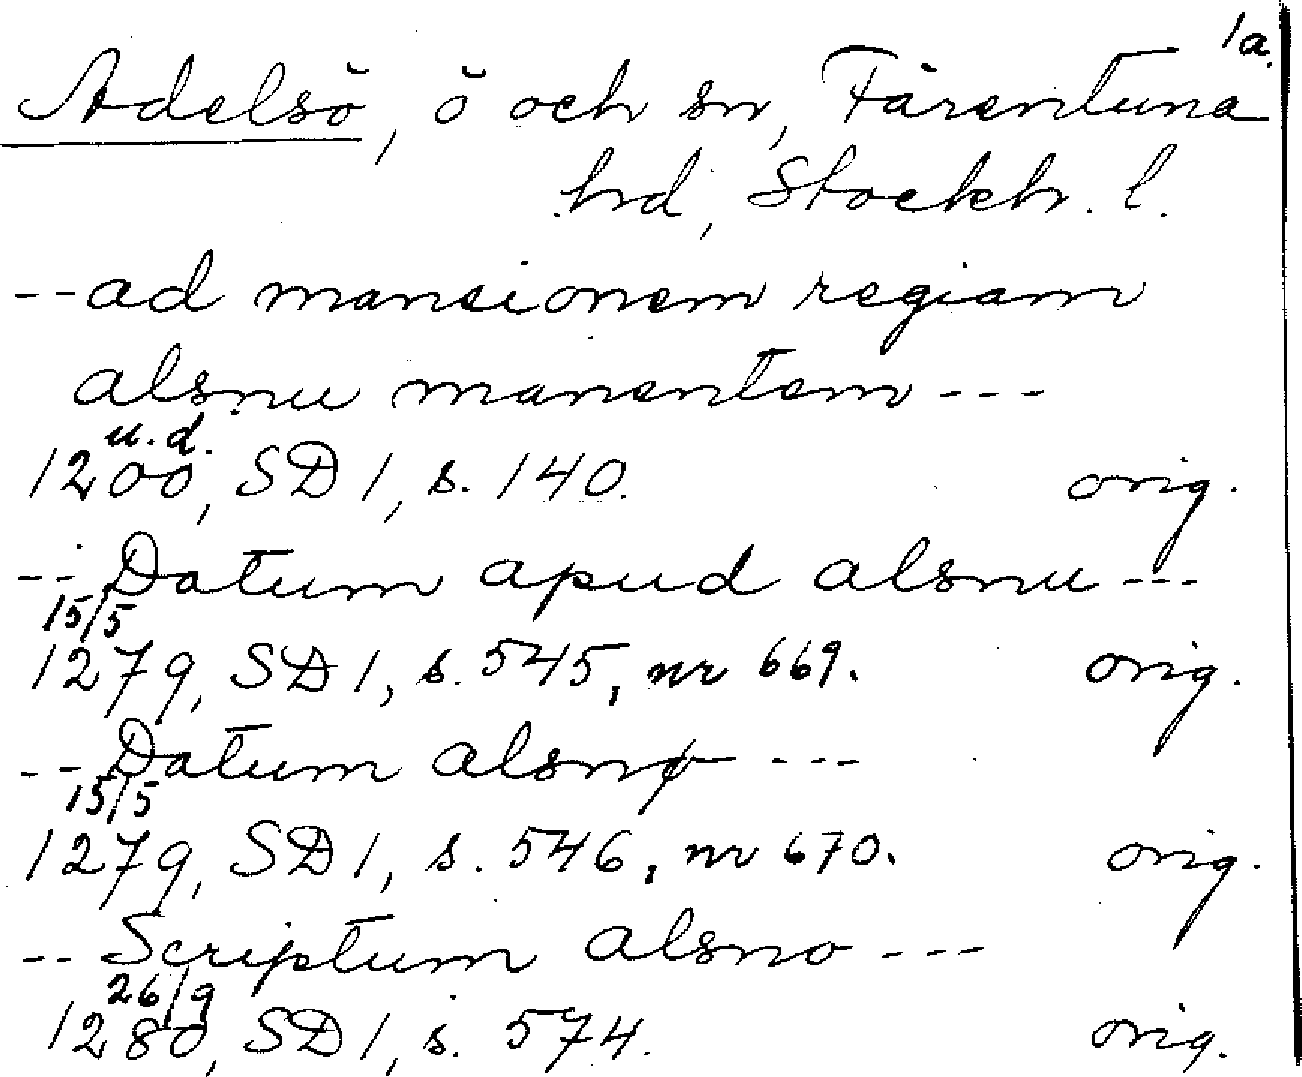 1a.
Adelsö, ö och sn, Färentuna
hd, Stockh. l.
--ad mansionem regiam
alsnu manentem---
u.d.
1200, SD 1, s. 140. orig.
-- Datum apud alsnu---
15/5
1279, SD 1, s. 545, nr 669. orig.
-- Datum alsnø---
15/5
1279, SD 1, s. 546, nr 670. orig.
-- Scriptum alsno---
26/9
1280, SD 1, s. 574. orig.